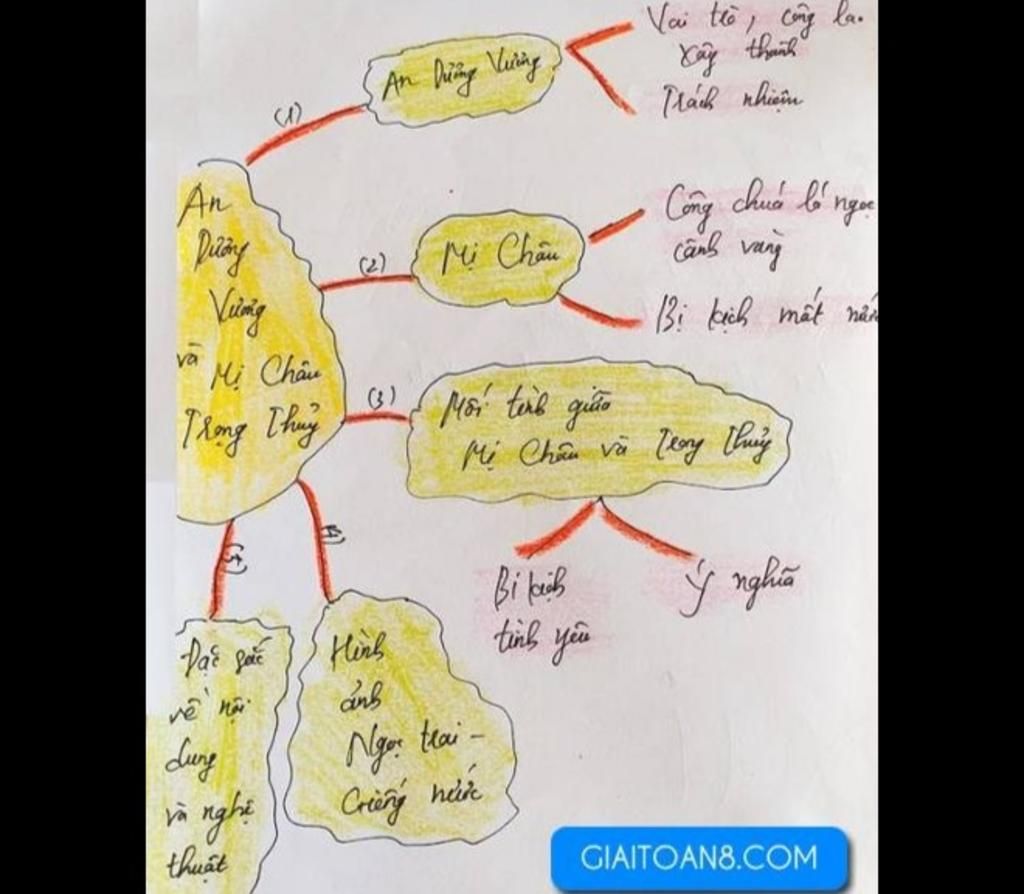 Vai trò, công la
xây thành
Trách nhiệm
An Dương Vương
(1)
An
Dương
Vương
và
Mị Châu
Trọng Thuỷ
(2)
Mị Châu
Công chúa lá ngọc
cành vàng
Bi kịch mất nước
(3)
Mối tình giữa
Mị Châu và Trọng Thuỷ
Bi kịch
tình yêu
Ý nghĩa
Hình
ảnh
Ngọc trai -
Giếng nước
Đặc sắc
về nội
dung
và nghệ
thuật
GIAITOAN8.COM